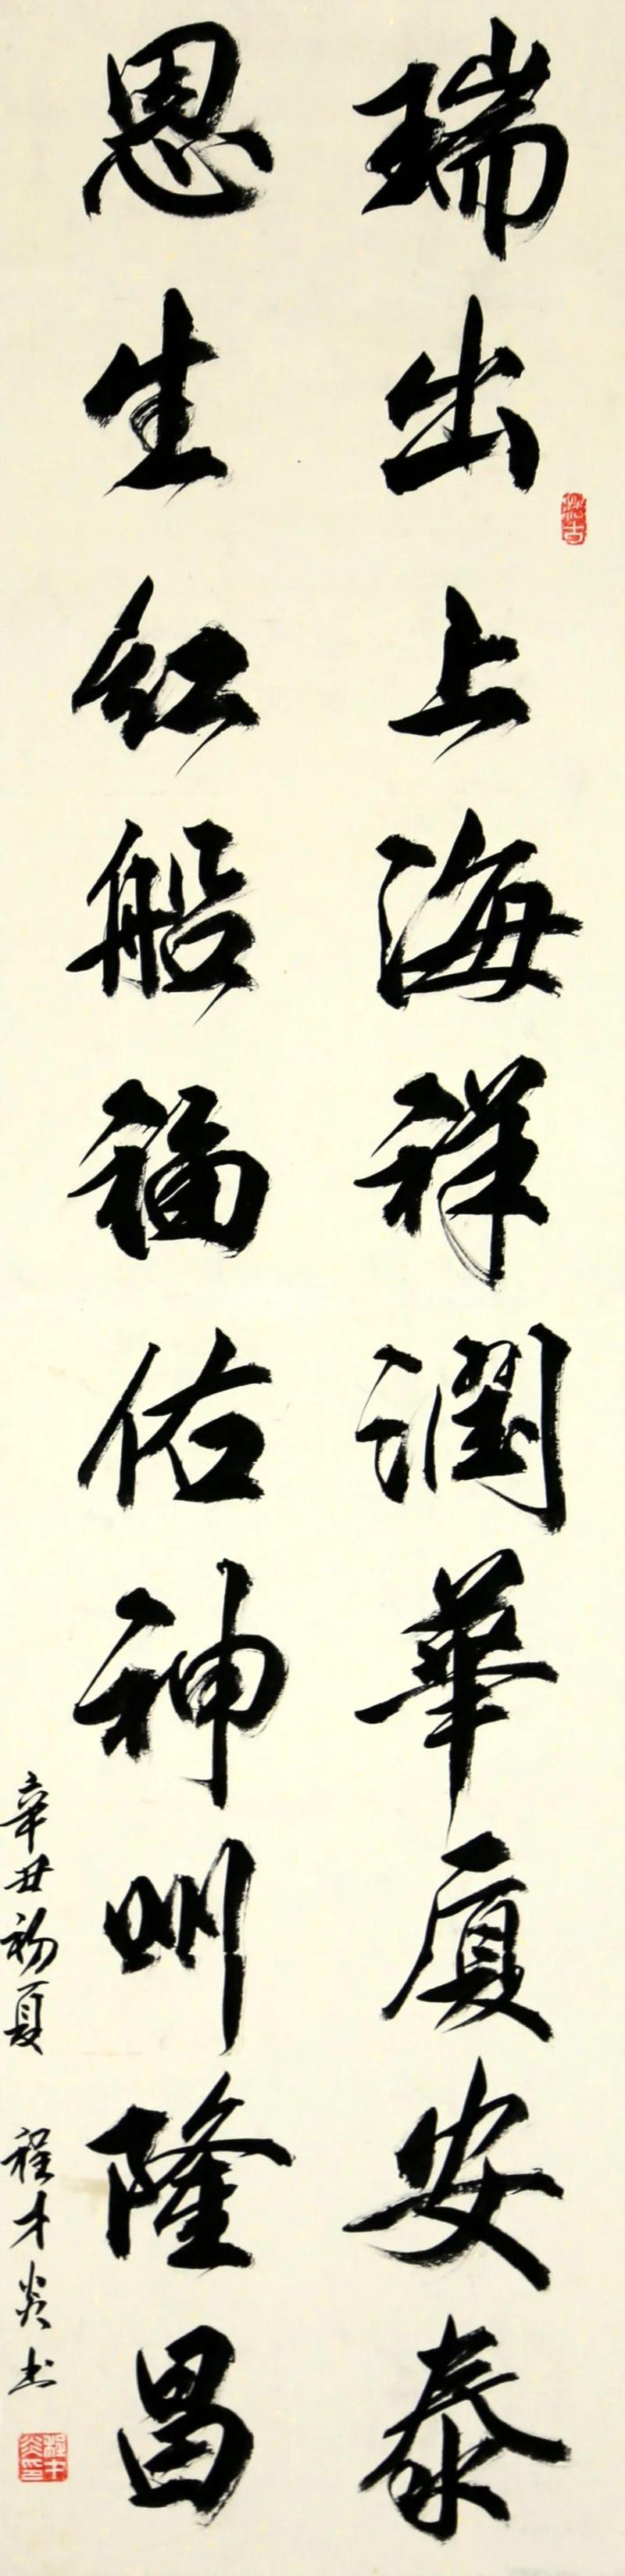 瑞出上海祥潤華厦安泰
恩生红船福佑神州隆昌
辛丑初夏 程才炎书